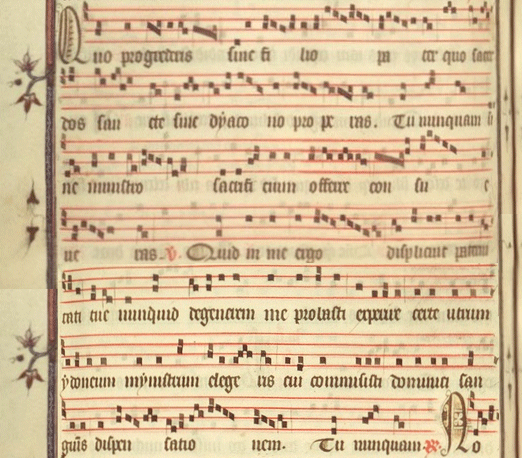 Quo progrederis sine fi lio pa ter quo sacer
dos san cte sine dyaco no pro pe ras. Tu nunquam si
ne ministro sacrifi cium offerre con su e
ue ras. V. Quid in me ergo displicuit paterni
tati tue nunquid degenerem me probasti experire certe utrum
ydoneum mynistrum elege ris cui commisisti dominici san
guis dispen satio nem. Tu nunquam R. No